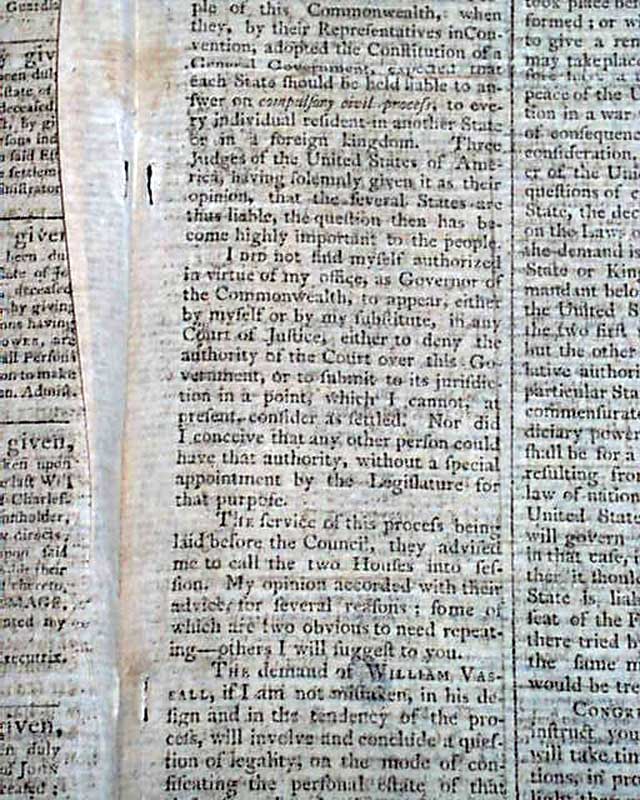 Guardia
giv
been duly
deceased,
by gi
said Est
settlem
given
been du
deceased
by giving
having
all Persons
on to make
n. Admin.
given,
ken upon
last Will
Charles
said
their
MAGE,
nted my
Executrix.
given,
n duly
ple of this Commonwealth, when
they, by their Representatives in Con-
vention, adopted the Constitution of a
General Government, expected that
each State ſhould be held liable to an-
ſwer on compulſory civil proceſs, to eve-
ry individual reſident in another State
or in a foreign kingdom. Three
Judges of the United States of Ame-
rica, having ſolemnly given it as their
opinion, that the ſeveral States are
thus liable, the queſtion then has be-
come highly important to the people.
I DID not find myſelf authorized
in virtue of my office, as Governor of
the Commonwealth, to appear, either
by myſelf or by my ſubſtitute, in any
Court of Juſtice, either to deny the
authority of the Court over this Go-
vernment, or to ſubmit to its juriſdic-
tion in a point, which I cannot, at
preſent, conſider as ſettled. Nor did
I conceive that any other perſon could
have that authority, without a ſpecial
appointment by the Legiſlature for
that purpoſe.
THE ſervice of this proceſs being
laid before the Council, they adviſed
me to call the two Houſes into ſeſ-
ſion. My opinion accorded with their
advice, for ſeveral reaſons ; ſome of
which are two obvious to need repeat-
ing—others I will ſuggeſt to you.
THE demand of WILLIAM VAS-
SALL, if I am not miſtaken, in his de-
ſign and in the tendency of the pro-
ceſs, will involve and conclude a queſ-
tion of legality, on the mode of con-
fiſcating the perſonal eſtate of that
took place bef
formed ; or w
to give a rem
may take place
peace of the U
tion in a war
of conſequen
conſideration.
er of the Unit
queſtions of
State, the dec
on the Laws o
the demand i
State or Kin
mandant belo
the United S
the two firſt
but the other
lative authori
particular Stat
commenſurat
diciary powe
ſhall be for a
reſulting fro
law of nation
United State
will govern
in that caſe, t
ther it ſhoul
State is liab
ſeat of the F
there tried b
the ſame m
would be tr
CONGR
inſtruct you
will take tim
tions, in pro